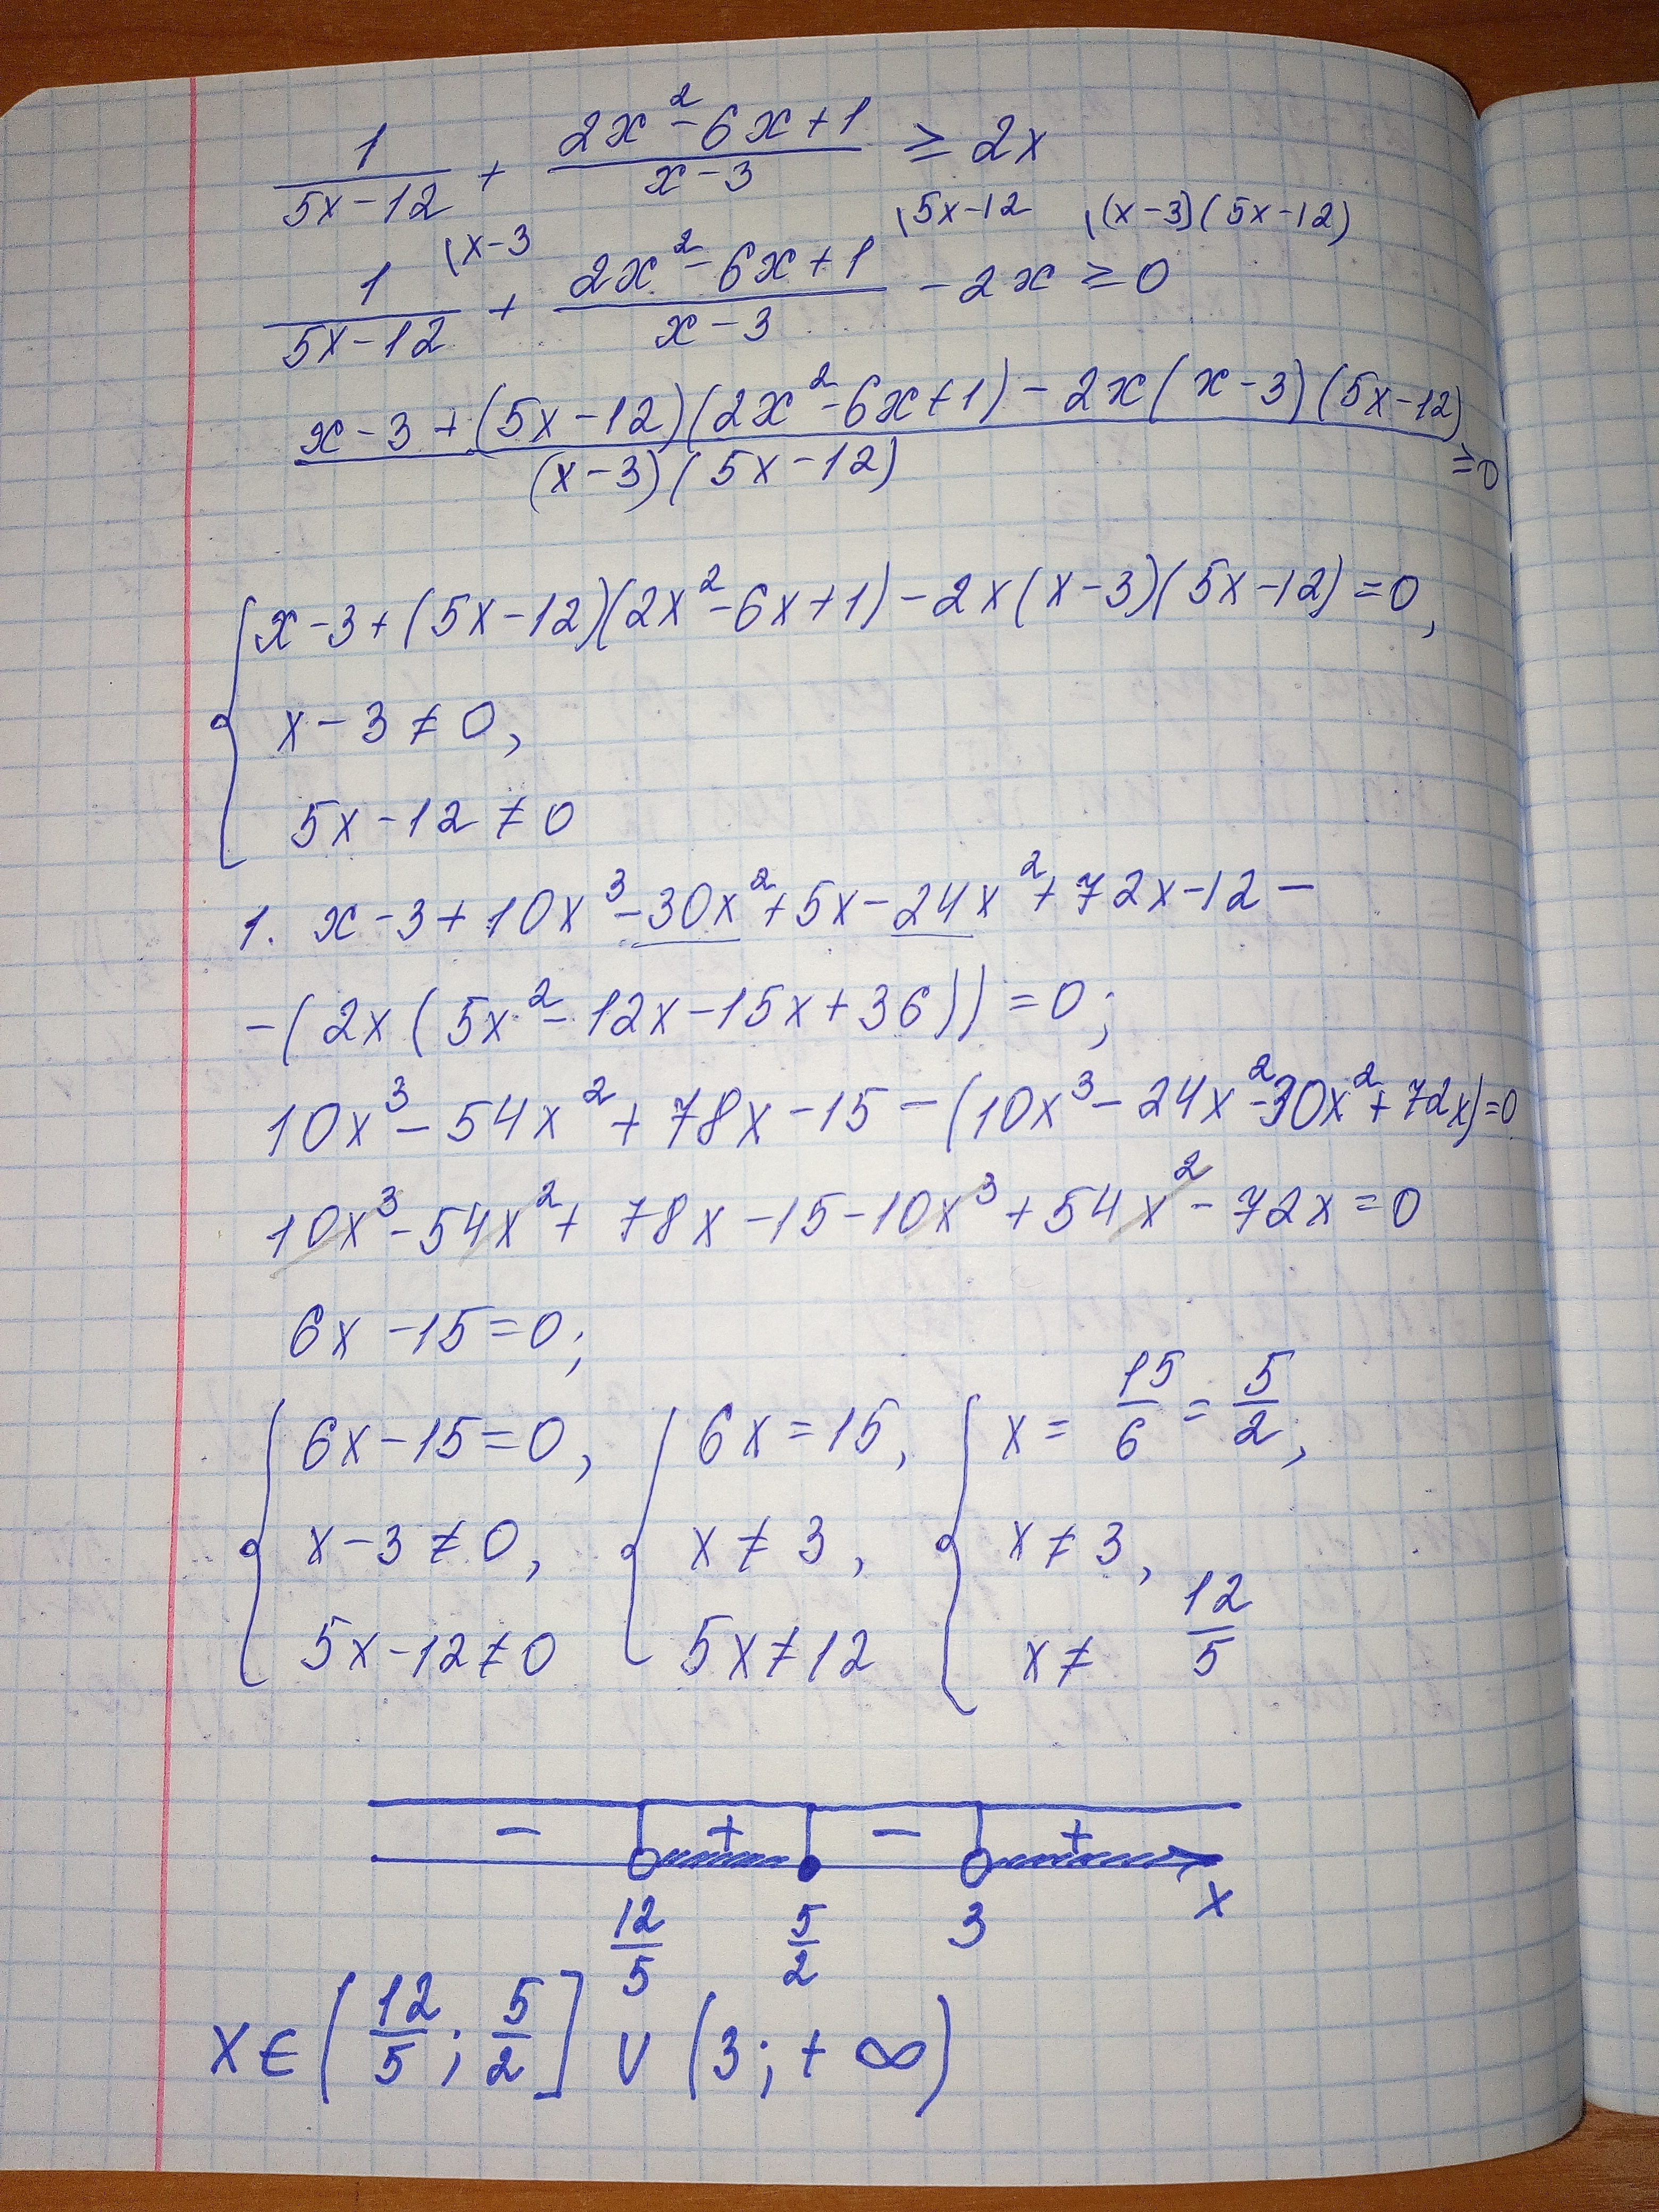 1/(5x-12) + (2x²-6x+1)/(x-3) ≥ 2x
1/(5x-12) (x-3 + (2x²-6x+1)/(x-3) (5x-12 - 2x ((x-3)(5x-12) ≥ 0
(x-3+(5x-12)(2x²-6x+1)-2x(x-3)(5x-12))/((x-3)(5x-12)) ≥0
{ x-3+(5x-12)(2x²-6x+1)-2x(x-3)(5x-12)=0,
x-3≠0,
5x-12≠0
1. x-3+10x³-30x²+5x-24x²+72x-12-
-(2x(5x²-12x-15x+36))=0;
10x³-54x²+78x-15-(10x³-24x²-30x²+72x)=0
10x³-54x²+78x-15-10x³+54x²-72x=0
6x-15=0;
{ 6x-15=0, { 6x=15, { x=15/6=5/2,
x-3≠0, x≠3, x≠3,
5x-12≠0 5x≠12 x≠12/5
- + - +
12/5 5/2 3 x
x∈(12/5; 5/2] ∪ (3;+∞)